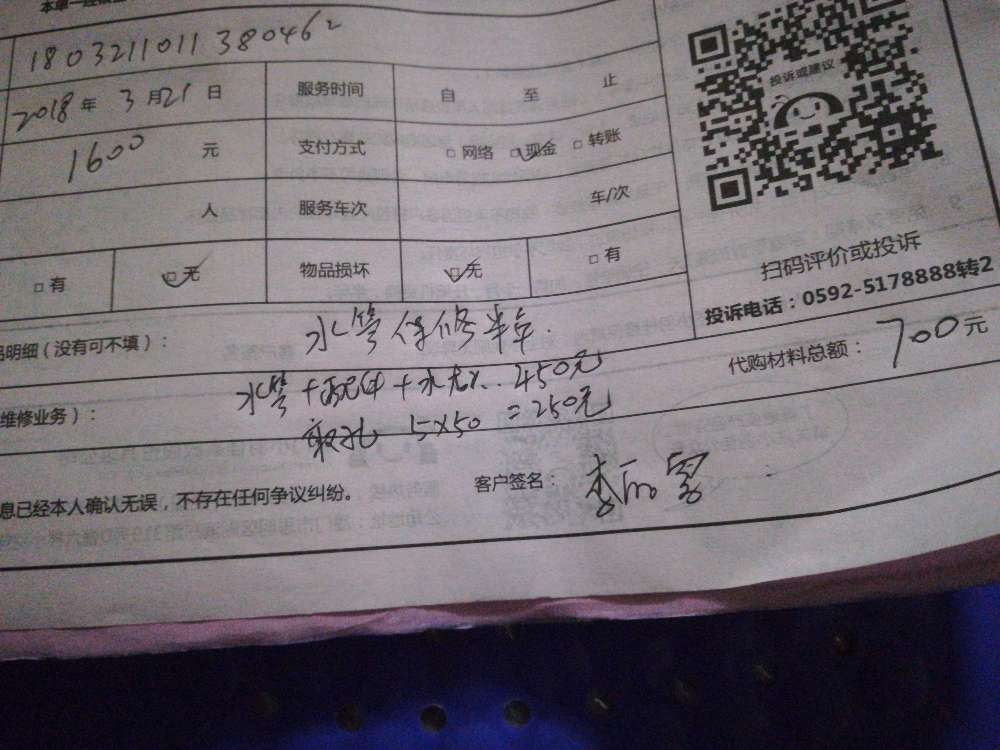 1803211011380462
2018 年 3 月 21 日 服务时间 自 至 止
1600 元 支付方式 □ 网络 □ 现金 □ 转账
人 服务车次 车/次
□ 有 □ 无 物品损坏 □ 无 □ 有
投诉或建议
扫码评价或投诉
投诉电话：0592-5178888转2
明细（没有可不填）： 水管保修半年.
代购材料总额： 700 元
维修业务）： 水管+配件+水龙头.. 450元
5×50 = 250元
息已经本人确认无误，不存在任何争议纠纷。 客户签名： 李丽